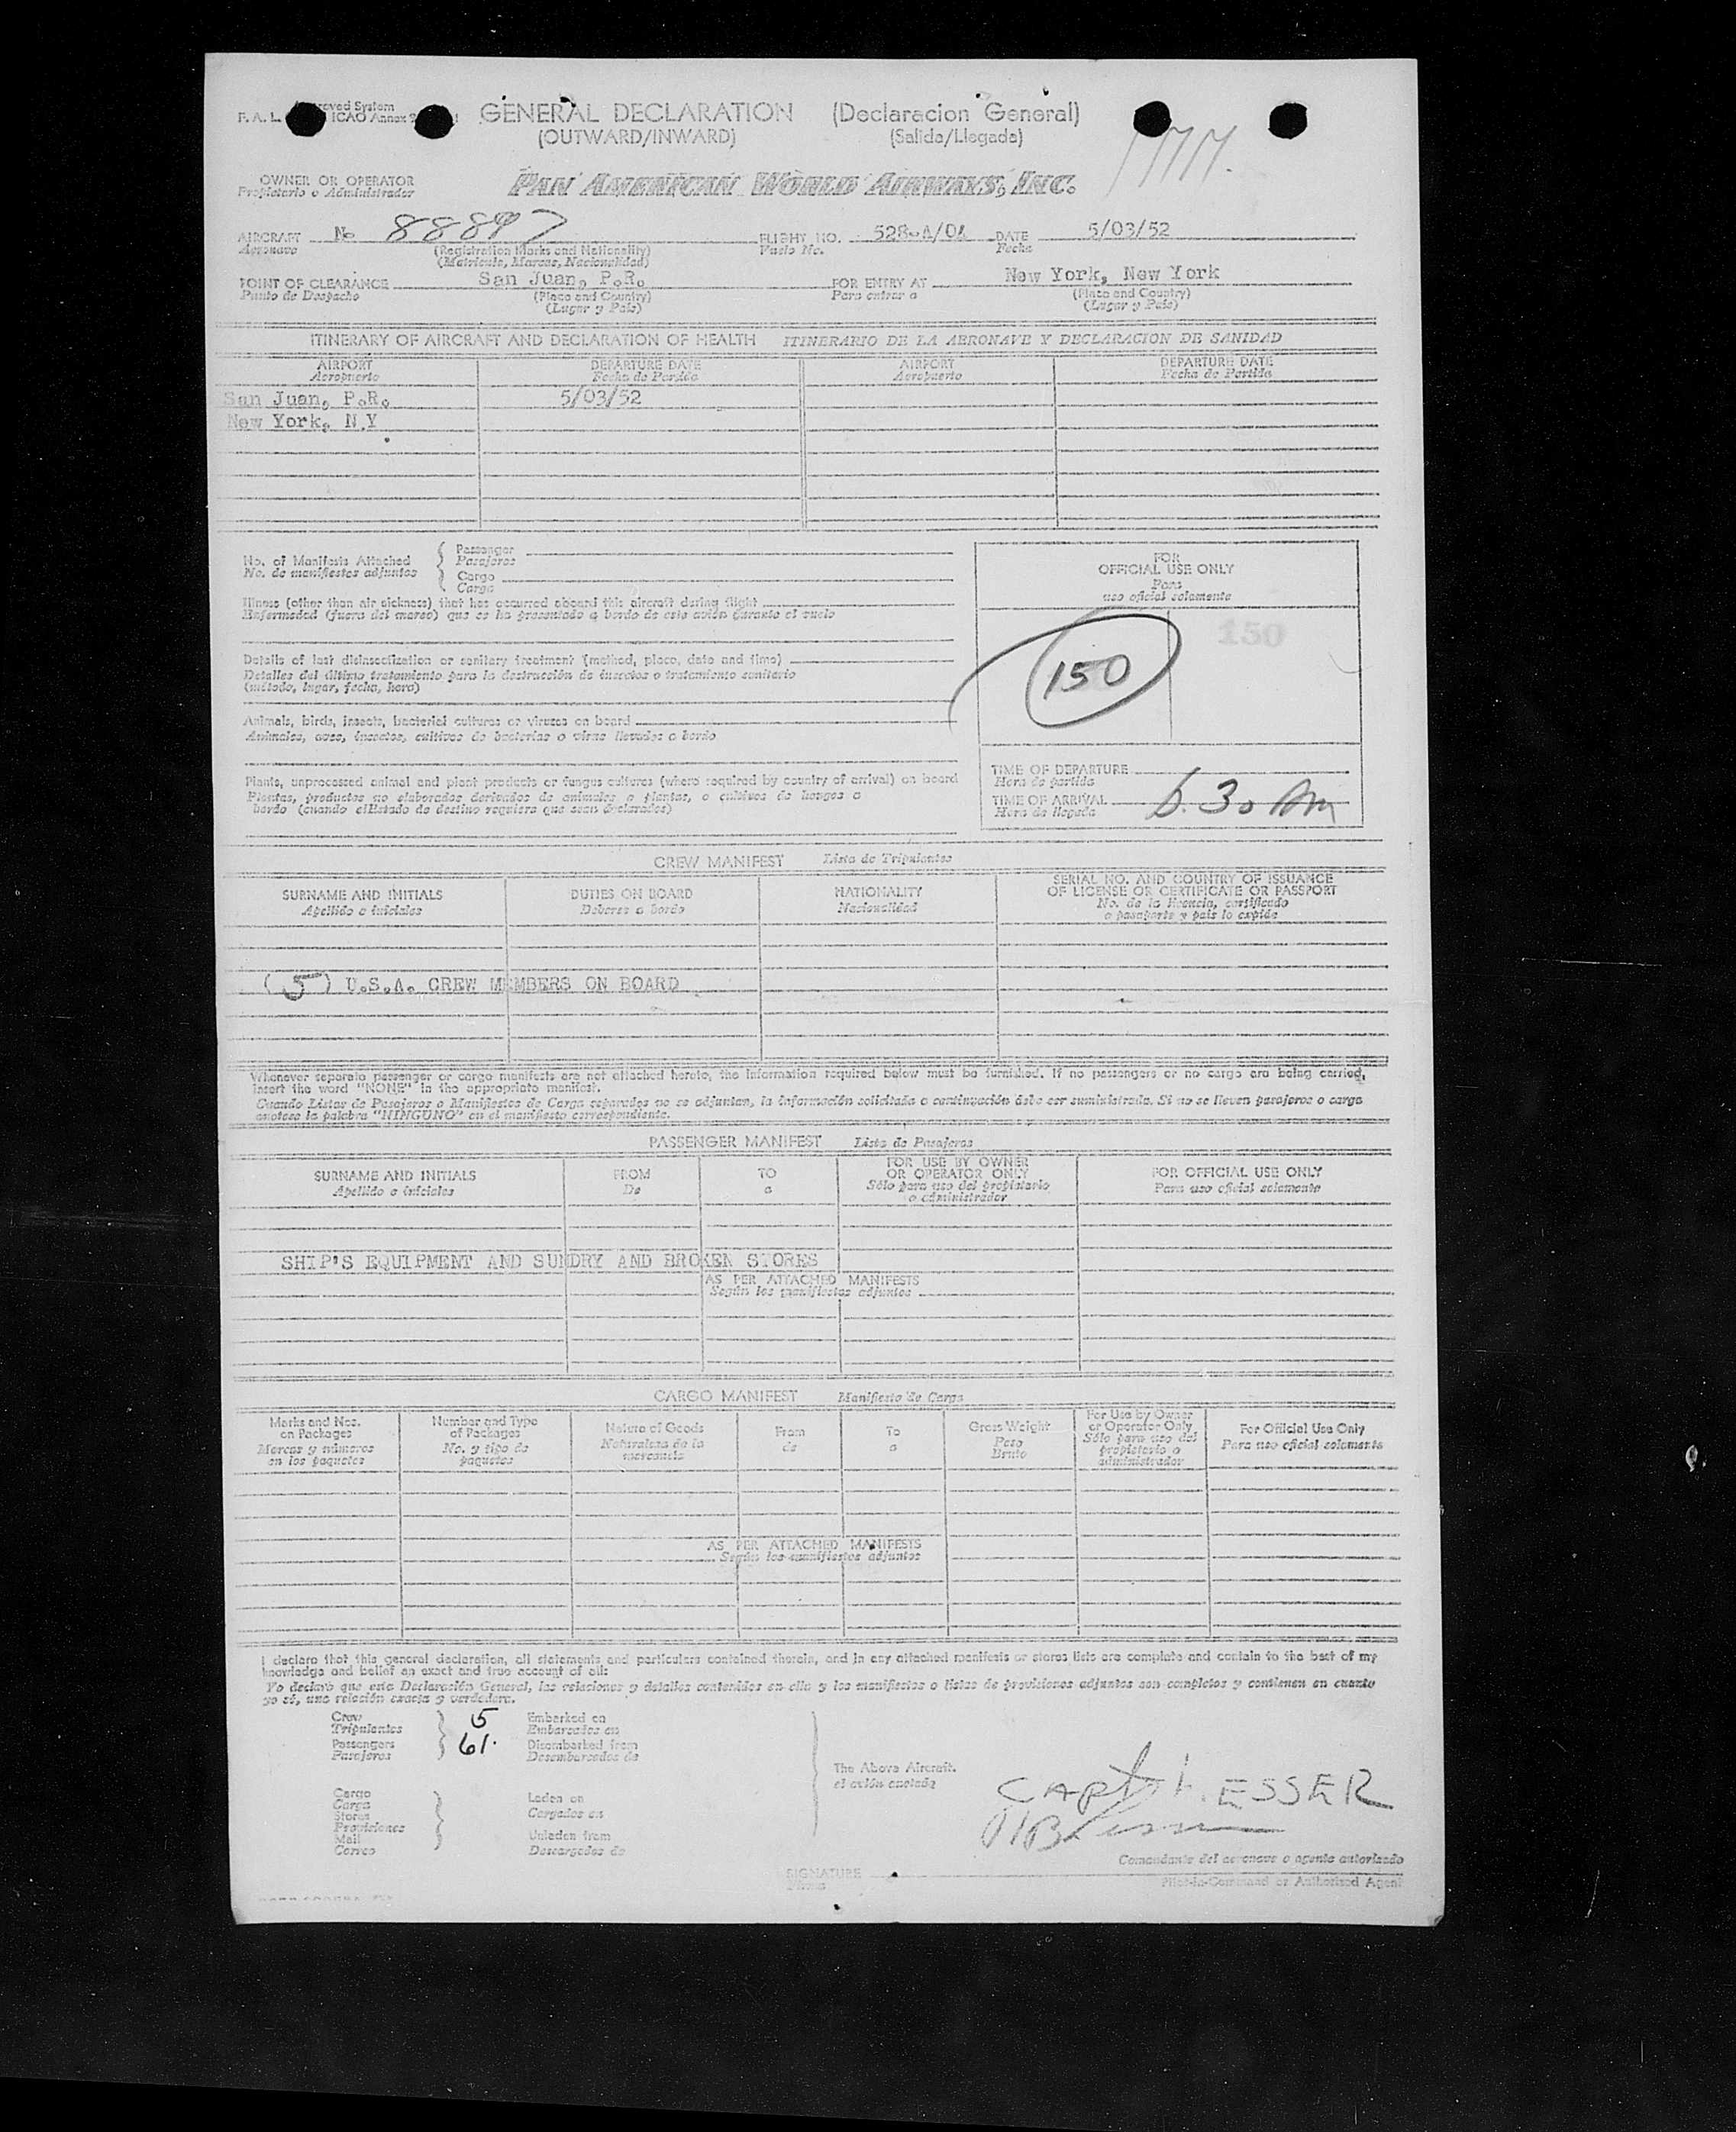 GENERAL DECLARATION (Declaracion General)
(OUTWARD/INWARD) (Salida/Llegada)
F. A. L. roved System
ICAO Annex 9
OWNER OR OPERATOR PAN AMERICAN WORLD AIRWAYS, INC.
Propietario o Administrador
AIRCRAFT No 88897 FLIGHT NO. 528-A/0A DATE 5/03/52
Aeronave (Registration Marks and Nationality) Vuelo No. Fecha
(Matricula, Marcas, Nacionalidad)
POINT OF CLEARANCE San Juan, P.R. FOR ENTRY AT New York, New York
Punto de Despacho (Place and Country) Para entrar a (Place and Country)
(Lugar y Pais) (Lugar y Pais)
ITINERARY OF AIRCRAFT AND DECLARATION OF HEALTH ITINERARIO DE LA AERONAVE Y DECLARACION DE SANIDAD
AIRPORT DEPARTURE DATE AIRPORT DEPARTURE DATE
Aeropuerto Fecha de Partida Aeropuerto Fecha de Partida
San Juan, P.R. 5/03/52
New York, N.Y
No. of Manifests Attached Passenger
No. de manifiestos adjuntos Pasajeros
Cargo
Carga
Illness (other than air sickness) that has occurred aboard this aircraft during flight
Enfermedad (fuera del mareo) que se ha presentado a bordo de este avión durante el vuelo
Details of last disinsectization or sanitary treatment (method, place, date and time)
Detalles del último tratamiento para la destrucción de insectos o tratamiento sanitario
(método, lugar, fecha, hora)
Animals, birds, insects, bacterial cultures or viruses on board
Animales, aves, insectos, cultivos de bacterias o virus llevados a bordo
Plants, unprocessed animal and plant products or fungus cultures (where required by country of arrival) on board
Plantas, productos no elaborados derivados de animales o plantas, o cultivos de hongos a
bordo (cuando el Estado de destino requiera que sean declarados)
FOR
OFFICIAL USE ONLY
Para
uso oficial solamente
150
150
TIME OF DEPARTURE
Hora de partida
TIME OF ARRIVAL 6.30 Am
Hora de llegada
CREW MANIFEST Lista de Tripulantes
SURNAME AND INITIALS DUTIES ON BOARD NATIONALITY SERIAL NO. AND COUNTRY OF ISSUANCE
OF LICENSE OR CERTIFICATE OR PASSPORT
Apellido e iniciales Deberes a bordo Nacionalidad No. de la licencia, certificado
o pasaporte y pais lo expide
(5) U.S.A. CREW MEMBERS ON BOARD
Whenever separate passenger or cargo manifests are not attached hereto, the information required below must be furnished. If no passengers or no cargo are being carried,
insert the word "NONE" in the appropriate manifest.
Cuando Listas de Pasajeros o Manifiestos de Carga separados no se adjuntan, la información solicitada a continuación debe ser suministrada. Si no se lleven pasajeros o carga
anotese la palabra "NINGUNO" en el manifiesto correspondiente.
PASSENGER MANIFEST Lista de Pasajeros
SURNAME AND INITIALS FROM TO FOR USE BY OWNER
OR OPERATOR ONLY FOR OFFICIAL USE ONLY
Apellido e iniciales De a Sólo para uso del propietario
o administrador Para uso oficial solamente
SHIP'S EQUIPMENT AND SUNDRY AND BROKEN STORES
AS PER ATTACHED MANIFESTS
Según los manifiestos adjuntos
CARGO MANIFEST Manifiesto de Carga
Marks and Nos.
on Packages
Marcas y números
en los paquetes
Number and Type
of Packages
No. y tipo de
paquetes
Nature of Goods
Naturaleza de la
mercancía
From
de
To
a
Gross Weight
Peso
Bruto
For Use by Owner
or Operator Only
Sólo para uso del
propietario o
administrador
For Official Use Only
Para uso oficial solamente
AS PER ATTACHED MANIFESTS
Según los manifiestos adjuntos
I declare that this general declaration, all statements and particulars contained therein, and in any attached manifests or stores lists are complete and contain to the best of my
knowledge and belief an exact and true account of all:
Yo declaro que esta Declaración General, las relaciones y detalles contenidos en ella y los manifiestos o listas de provisiones adjuntos son completos y contienen en cuanto
yo sé, una relación exacta y verdadera.
Crew 5 Embarked on
Tripulantes Embarcados en
Passengers 61. Disembarked from
Pasajeros Desembarcados de
The Above Aircraft.
el avión anotado
Cargo
Carga
Stores
Provisiones
Mail
Correo
Laden on
Cargados en
Unladen from
Descargados de
CAPT. ESSER
Comandante del aeronave o agente autorizado
SIGNATURE
Firma
Pilot-in-Command or Authorized Agent